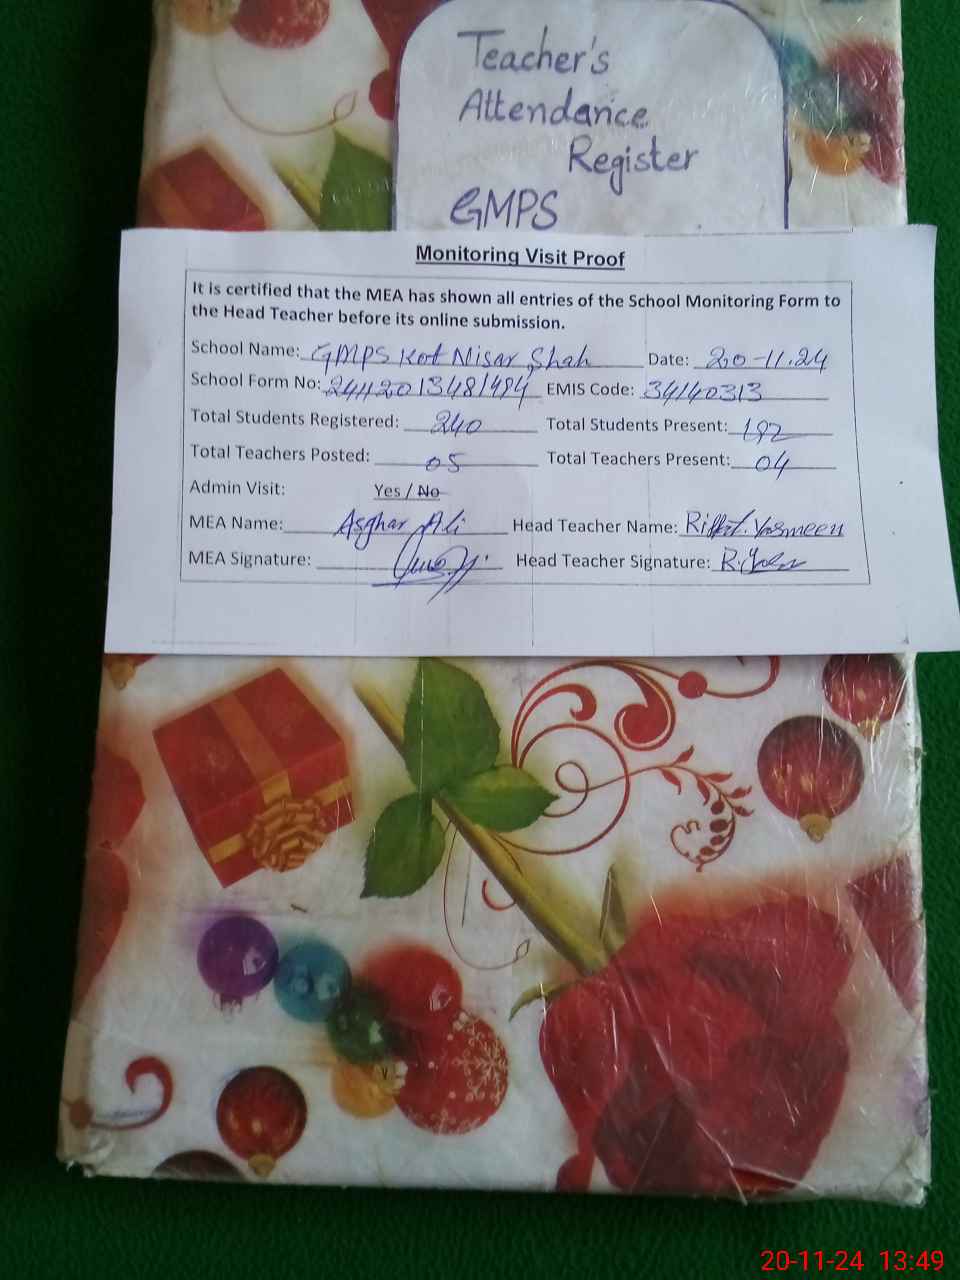 Teacher's
Attendance
Register
GMPS
Monitoring Visit Proof
It is certified that the MEA has shown all entries of the School Monitoring Form to
the Head Teacher before its online submission.
School Name: GMPS Kot Nisar Shah Date: 20-11.24
School Form No: EMIS Code: 34140313
Total Students Registered: 240 Total Students Present: 192
Total Teachers Posted: 05 Total Teachers Present: 04
Admin Visit: Yes / No
MEA Name: Asghar Ali Head Teacher Name: Riffat. Yasmeen
MEA Signature: Head Teacher Signature:
20-11-24 13:49